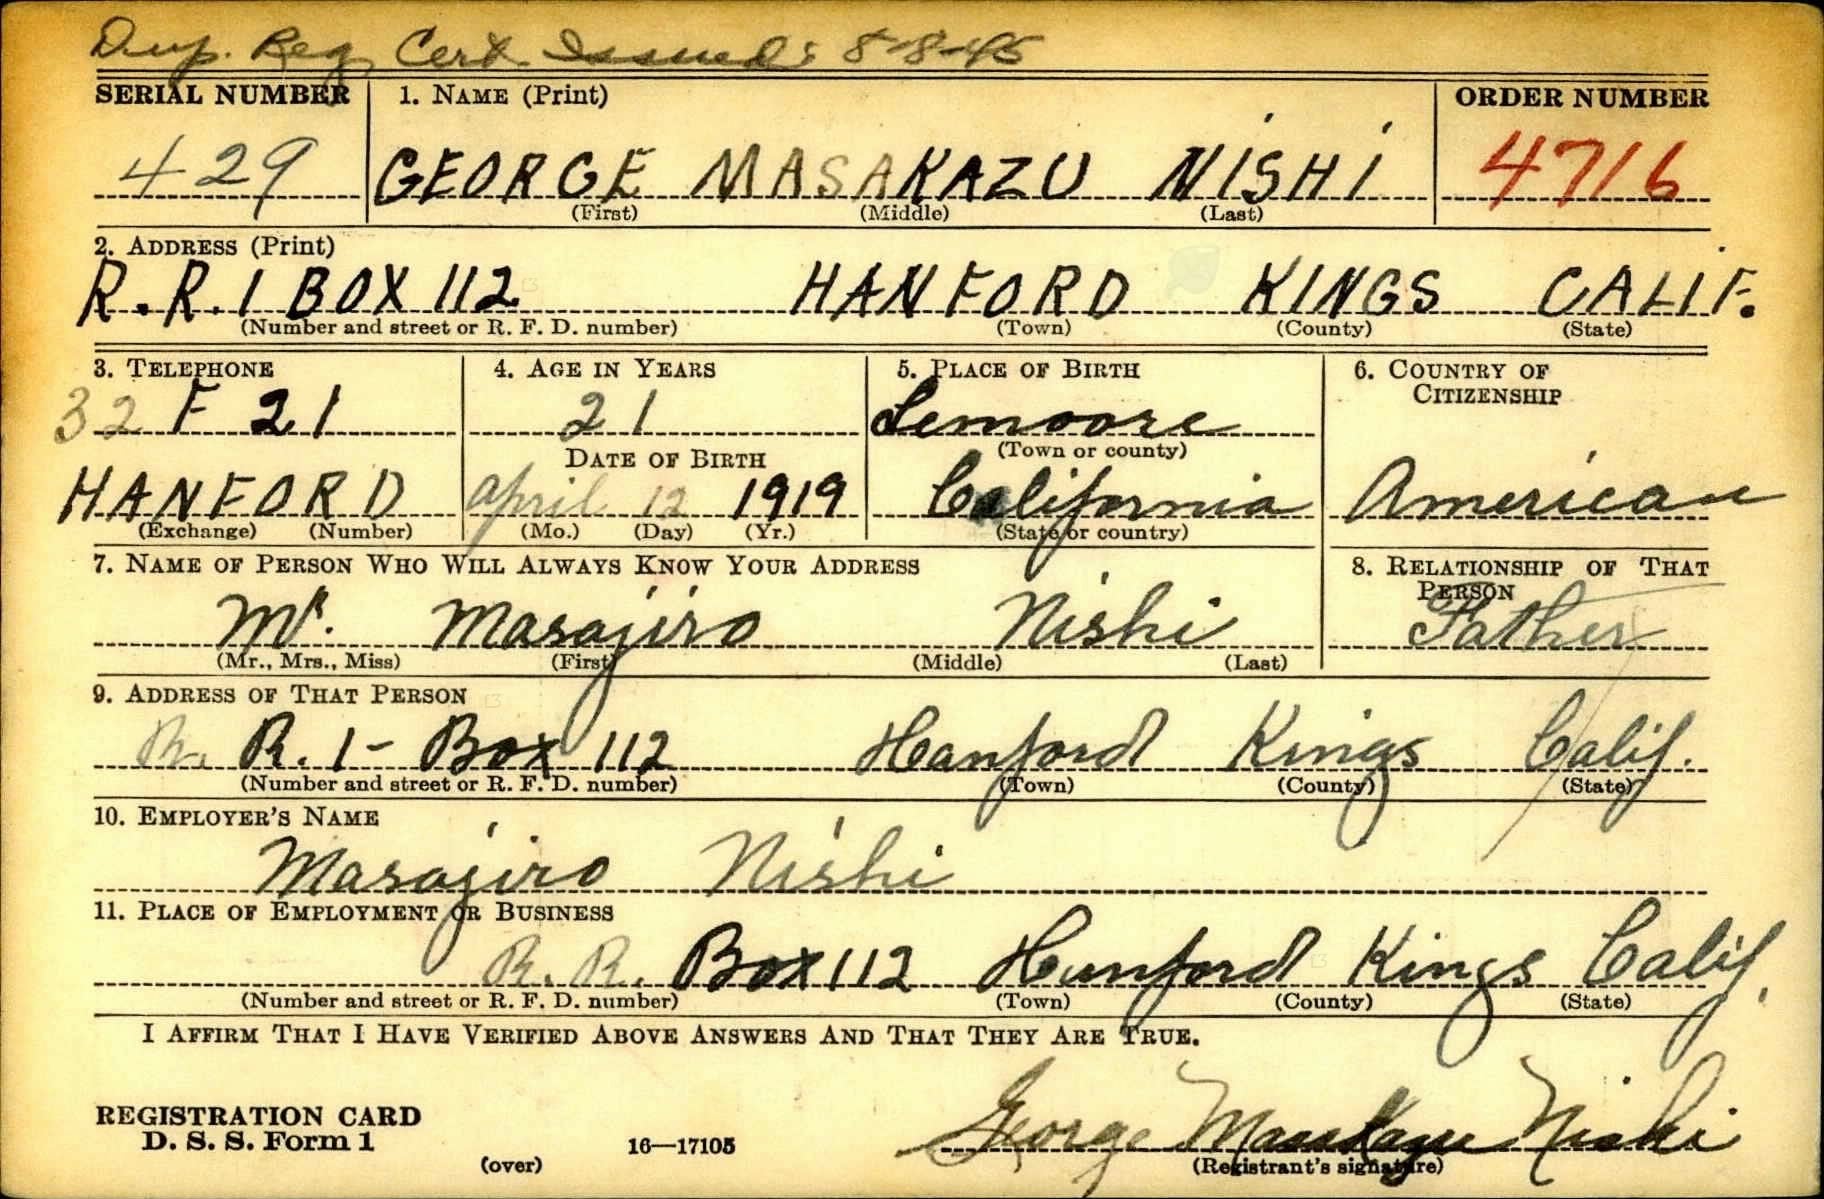 Dup. Reg Cert Issued: 8-8-45
SERIAL NUMBER 1. NAME (Print) ORDER NUMBER
429 GEORGE MASAKAZU NISHI 4716
(First) (Middle) (Last)
2. ADDRESS (Print)
R. R. 1 BOX 112 HANFORD KINGS CALIF.
(Number and street or R. F. D. number) (Town) (County) (State)
3. TELEPHONE 4. AGE IN YEARS 5. PLACE OF BIRTH 6. COUNTRY OF
CITIZENSHIP
32 F 21 21 Lemoore
(Town or county)
DATE OF BIRTH
HANFORD April 12 1919 California American
(Exchange) (Number) (Mo.) (Day) (Yr.) (State or country)
7. NAME OF PERSON WHO WILL ALWAYS KNOW YOUR ADDRESS 8. RELATIONSHIP OF THAT
PERSON
Mr. Masajiro Nishi Father
(Mr., Mrs., Miss) (First) (Middle) (Last)
9. ADDRESS OF THAT PERSON
R. R. 1 - Box 112 Hanford Kings Calif.
(Number and street or R. F. D. number) (Town) (County) (State)
10. EMPLOYER'S NAME
Masajiro Nishi
11. PLACE OF EMPLOYMENT OR BUSINESS
R. R. Box 112 Hanford Kings Calif.
(Number and street or R. F. D. number) (Town) (County) (State)
I AFFIRM THAT I HAVE VERIFIED ABOVE ANSWERS AND THAT THEY ARE TRUE.
REGISTRATION CARD
D. S. S. Form 1 16—17105 George Masakazu Nishi
(over) (Registrant's signature)